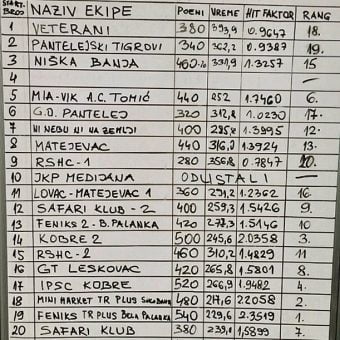 START. BROJ NAZIV EKIPE POENI VREME HIT FAKTOR RANG
1 VETERANI 380 393,9 0.9647 18.
2 PANTELEJSKI TIGROVI 340 362,2 0.9387 19.
3 NIŠKA BANJA 331,9 1.3257 15
4 — —
5 MIA-VIK A.C. TOMIĆ 440 252 1.7460 6.
6 G.D. PANTELEJ 320 312,8 1.0230 17.
7 NI NEBU NI NA ZEMLJI 400 285,8 1.3995 12.
8 MATEJEVAC 440 316,0 1.3924 13.
9 RSHC-1 280 356,8 0.7847 20.
10 JKP MEDIJANA ODUSTALI — —
11 LOVAC-MATEJEVAC 1 360 291,2 1.2362 16.
12 SAFARI KLUB - 2 400 259,3 1.5426 9.
13 FENIKS 2 - B. PALANKA 420 277,3 1.5146 10
14 KOBRE 2 500 245,6 2.0358 3.
15 RSHC-2 460 310,2 1.4829 11
16 GT LESKOVAC 420 265,8 1.5801 8.
17 IPSC KOBRE 520 266,9 1.9482 4.
18 MINI MARKET TR PLUS 480 217,6 2.2058 2.
19 FENIKS TR PLUS BELA PALANKA 540 229,6 2.3519 1.
20 SAFARI KLUB 380 239,1 1,5899 7.